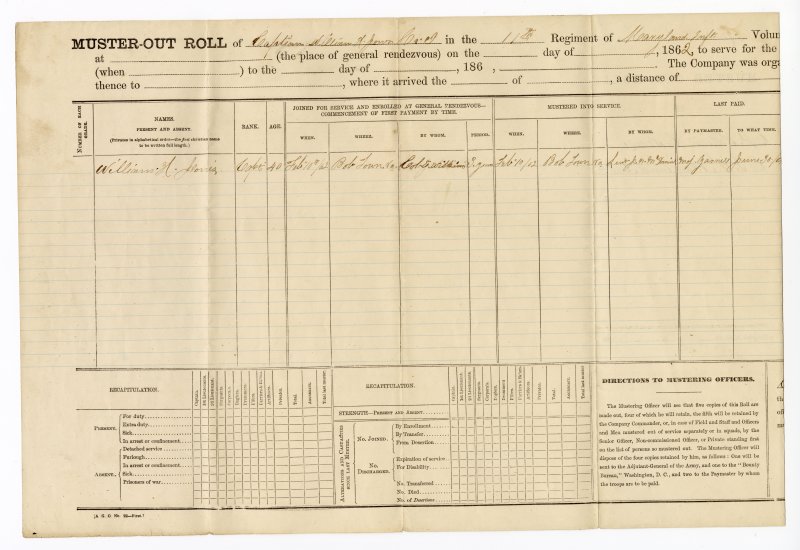 MUSTER-OUT ROLL of Captain William H in the 11th Regiment of Maryland Volu
at (the place of general rendezvous) on the day of , 1862, to serve for the
(when ) to the day of , 186 , The Company was orga
thence to , where it arrived the of , a distance of
NUMBER OF EACH GRADE.
NAMES.
PRESENT AND ABSENT.
(Privates in alphabetical order—the first christian name to be written full length.)
RANK.
AGE.
JOINED FOR SERVICE AND ENROLLED AT GENERAL RENDEZVOUS—
COMMENCEMENT OF FIRST PAYMENT BY TIME.
WHEN.
WHERE.
BY WHOM.
PERIOD.
MUSTERED INTO SERVICE.
WHEN.
WHERE.
BY WHOM.
LAST PAID.
BY PAYMASTER.
TO WHAT TIME.
William H. Capt 40 Feb 10th/62 Bob Town Va Feb 10/62 Bob Town Va June 30/6
RECAPITULATION.
Captain.
1st Lieutenants.
2d Lieutenants.
Sergeants.
Corporals.
Buglers.
Drummers.
Fifers.
Farriers & B'smiths.
Artificers.
Privates.
Total.
Aggregate.
Total last muster.
PRESENT.
For duty
Extra duty
Sick
In arrest or confinement
ABSENT.
Detached service
Furlough
In arrest or confinement
Sick
Prisoners of war
RECAPITULATION.
STRENGTH—PRESENT AND ABSENT
ALTERATIONS AND CASUALTIES SINCE LAST MUSTER.
No. JOINED.
By Enrollment
By Transfer
From Desertion
No. DISCHARGED.
Expiration of service
For Disability
No. Transferred
No. Died
No. of Desertions
DIRECTIONS TO MUSTERING OFFICERS.
The Mustering Officer will see that five copies of this Roll are
made out, four of which he will retain, the fifth will be retained by
the Company Commander, or, in case of Field and Staff and Officers
and Men mustered out of service separately or in squads, by the
Senior Officer, Non-commissioned Officer, or Private standing first
on the list of persons so mustered out. The Mustering Officer will
dispose of the four copies retained by him, as follows: One will be
sent to the Adjutant-General of the Army, and one to the "Bounty
Bureau," Washington, D. C., and two to the Paymaster by whom
the troops are to be paid.
[A. G. O. No. 92—First.]